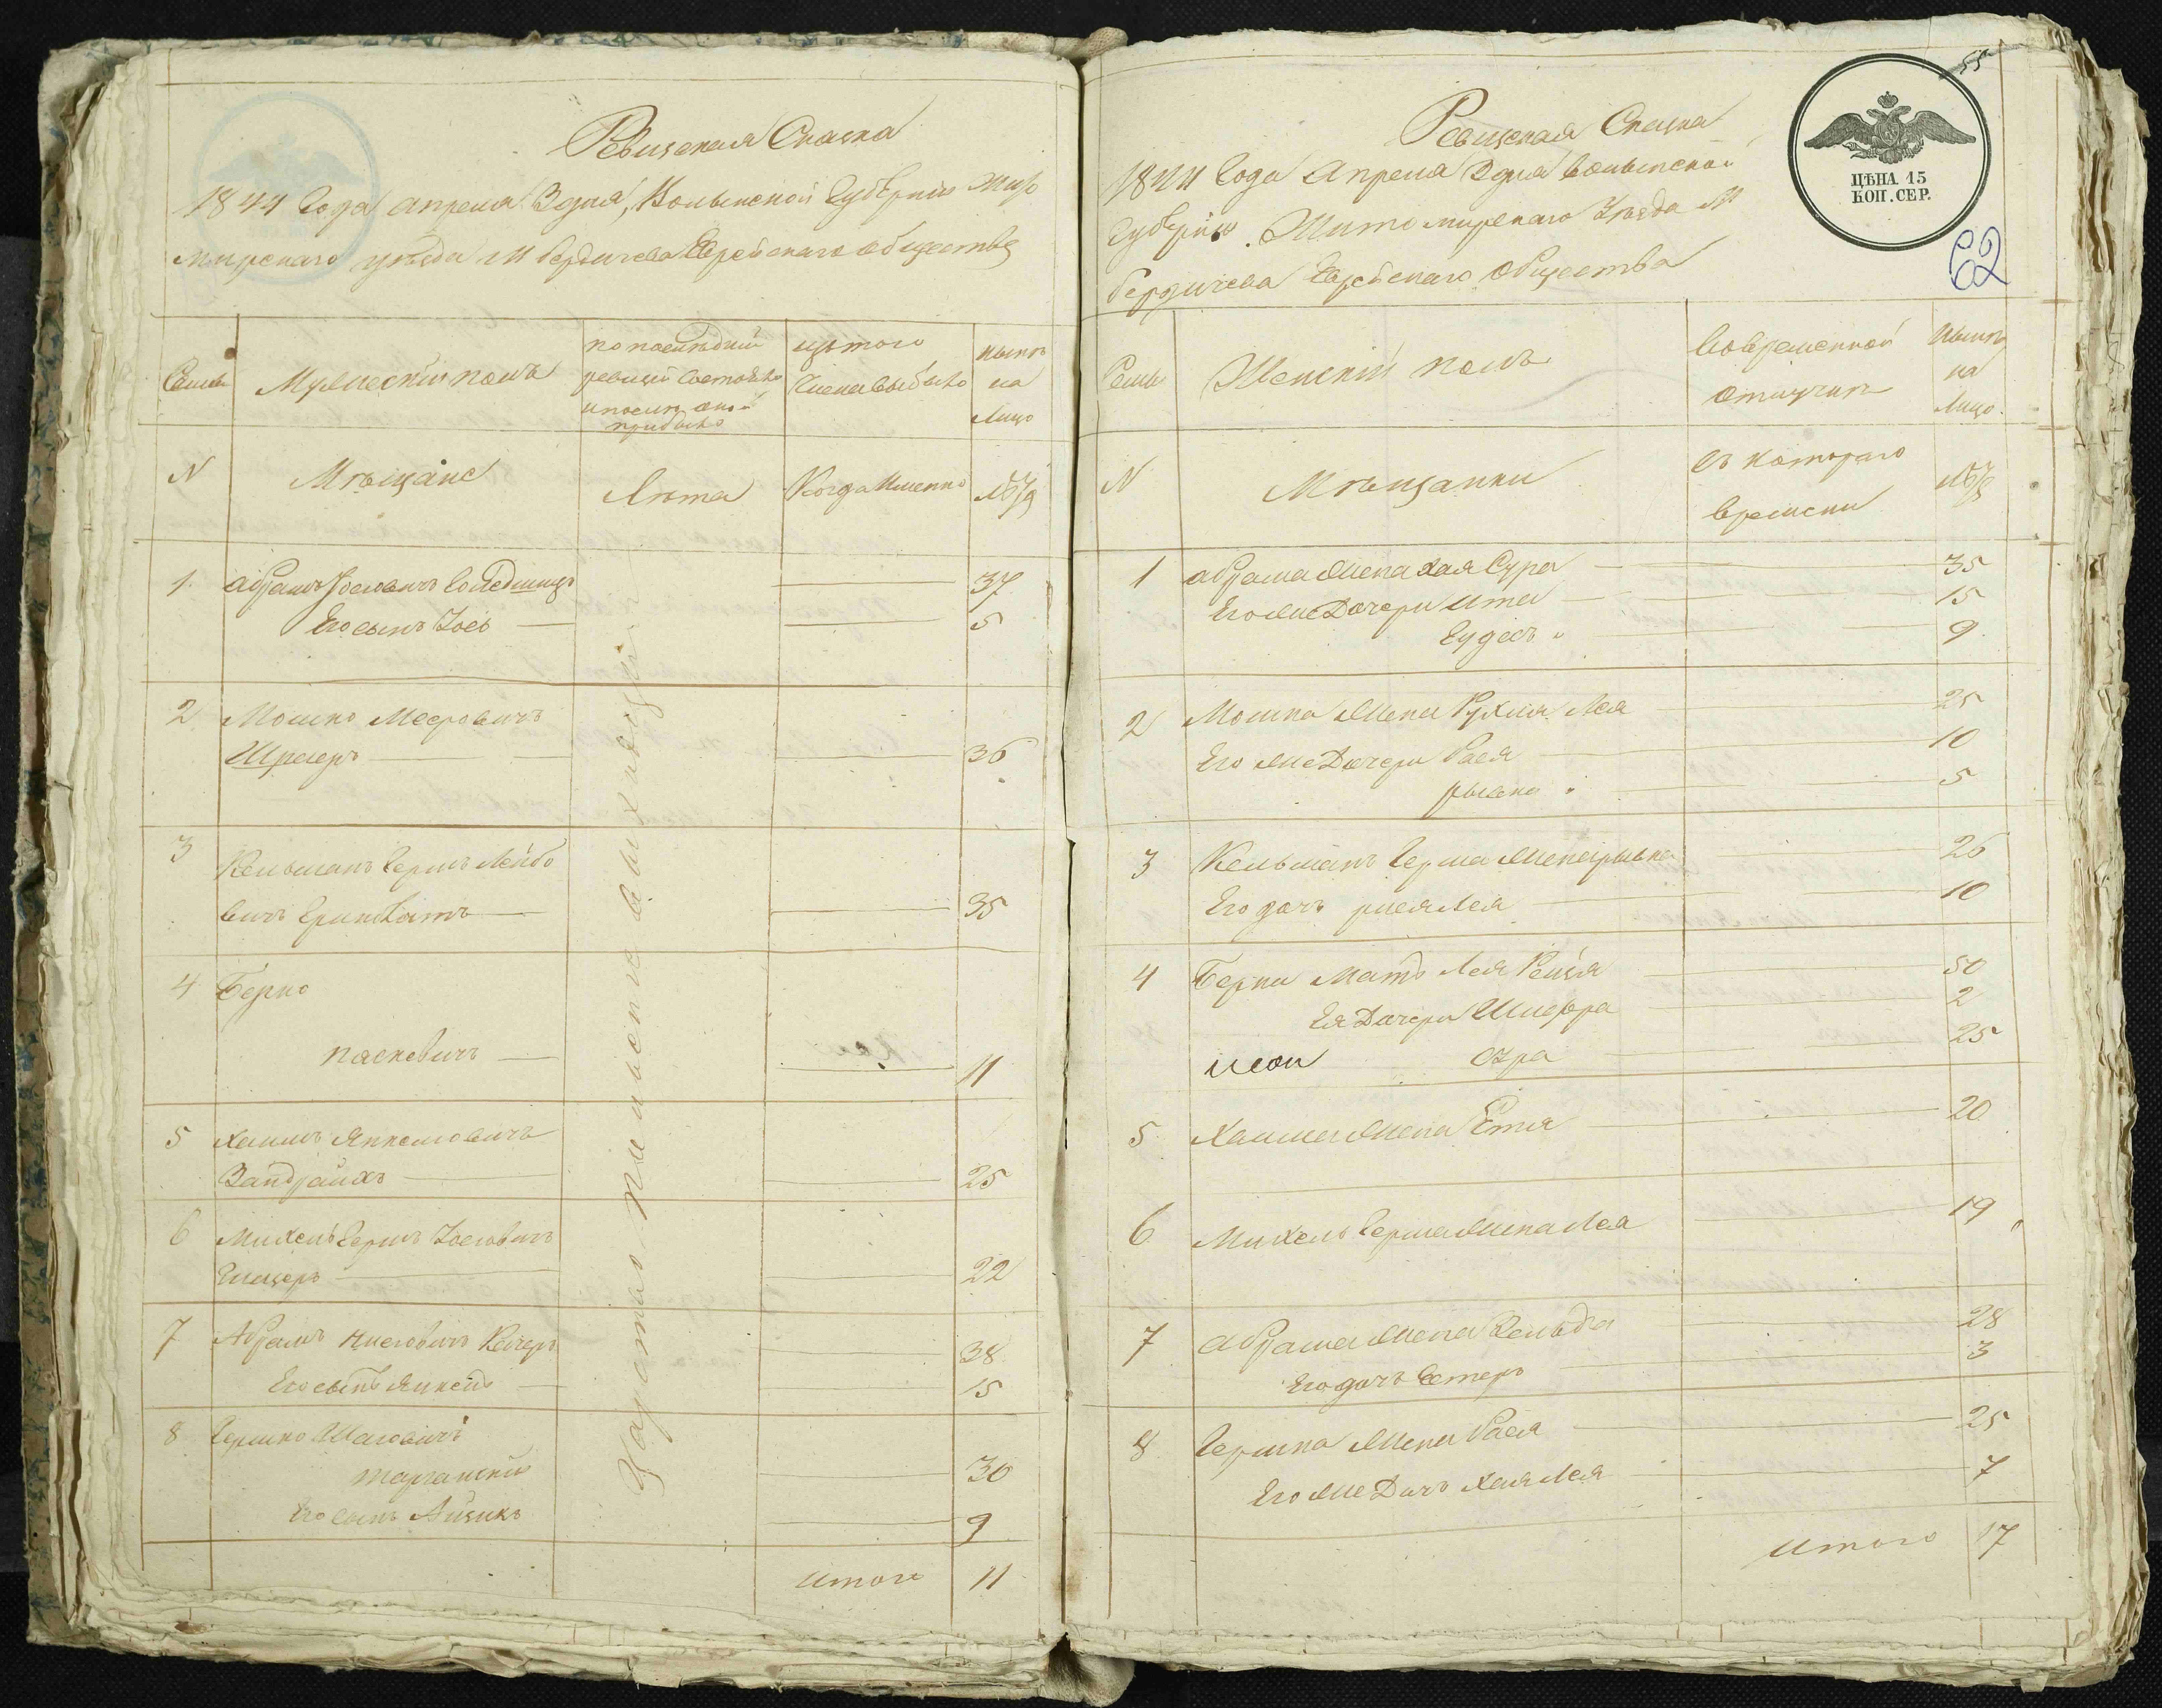 Ревизская Сказка
1844 Года апреля 3 дня, Волынской Губернии Жито
мирского уезда М Бердичева Еврейскаго общества
Семьи
Мужескій полъ
по последней
ревизіи состояло
и после оной
прибыло
изъ того
числа выбыло
ныне
на
лицо
N
Мѣщане
Лѣта
Когда Именно
Лѣта
1 Абрамъ Іосіовичъ 37
Его сынъ Іось 5
2 Мошко Меeровичъ
Шраеръ 36
3
Кельманъ Гершъ Лейбо
вичъ 35
4 Берко
паскевичъ 11
5 Хаимъ Янкелювичъ
25
6 Михель Гершъ Іосіовичъ
22
7 Абрамъ Качеръ 38
Его сынъ Янкель 15
8 Гершко
30
Его сынъ Айзикъ 9
Итого 11
55
Ревизская Сказка
1844 Года Апреля 3 дня Волынской
Губерніи Житомирскаго Уезда М
Бердичева Еврейскаго Общества
ЦѢНА 15
КОП. СЕР.
62
Семьи
Женскій полъ
Во временной
отлучке
Ныне
на
лицо
N
Мѣщанки
съ котораго
времени
Лѣта
1 Абрама жена Хая Сура 35
Его же Дочери Ита 15
Гудесъ 9
2 Мошка жена Рухля Лея 25
Его же Дочери Рася 10
рывка 5
3 Кельманъ Герша жена рывка 26
Его дочь Лея 10
4 Берки Мать Лея 50
Ея Дочери Шифра 2
25
5 Хаима жена Етя 20
6 Михель Герша жена Лея 19
7 Абрама жена Зельда 28
Его дочь Естеръ 3
8 Гершка жена Рася 25
Его же Дочь Хая Лея 7
Итого 17